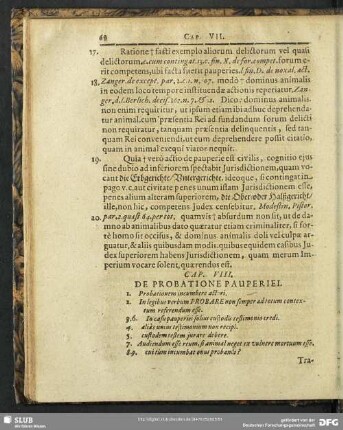 68 CAP. VII.
17. Ratione † facti exemplo aliorum delictorum vel quasi
delictorum,
erit competens, ubi facta fuerit pauperies.
18. modò † dominus animalis
in eodem loco tempore instituendæ actionis reperiatur,
Dico: dominus animalis,
non enim requiritur, ut ipsum etiam ibi adhuc deprehenda-
tur animal, cum præsentia Rei ad fundandum forum delicti
non requiratur, tanquam præsentia delinquentis, sed tan-
quam Rei conveniendi, ut eum deprehendere possit citatio,
quam in animal exequi viator nequit.
19. Quia † verò actio de pauperie est civilis, cognitio ejus
sine dubio ad inferiorem spectabit Jurisdictionem, quam vo-
cant die Erbgerichte/Untergerichte. ideoque, si contingat in
pago v. c. aut civitate penes unum istam Jurisdictionem esse,
penes alium alteram superiorem, die Ober oder Halßgericht/
ille, non hic, competens Judex censebitur. Modestin. Pistor.
20. par. 2. quæst 84. per tot. quamvis † absurdum non sit, ut de da-
mno ab animalibus dato quæratur etiam criminaliter, si for-
tè homo sit occisus, & dominus animalis doli vel culpæ ar-
guatur, & aliis quibusdam modis. quibus equidem casibus Ju-
dex superiorem habens Jurisdictionem, quam merum Im-
perium vocare solent, quærendus est.
CAP. VIII.
DE PROBATIONE PAUPERIEI.
1. Probationem incumbere actori.
2. In legibus verbum PROBARE non semper ad totum contex-
tum referendum esse.
3.6. In casu pauperiei solius custodis testimonio credi.
4. aliàs unius testimonium non recipi.
5. custodem testem jurare debere.
7. Audiendum esse reum, si animal neget ex vulnere mortuum esse.
8.9. cui cùm incumbat onus probandi?
Tra-
SLUB
DFG